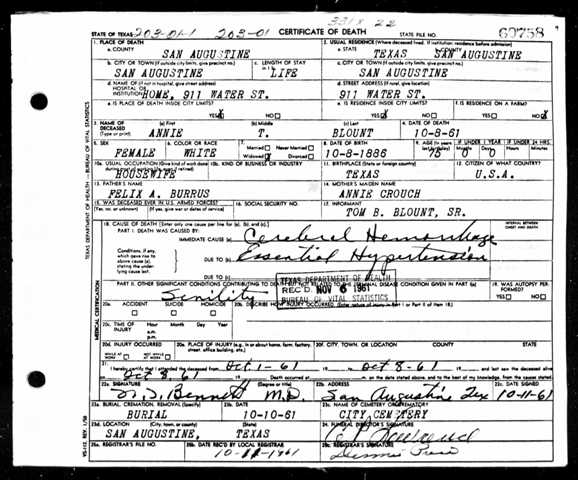 331X 22
STATE OF TEXAS 203-01-1 203-01 CERTIFICATE OF DEATH STATE FILE NO. 60758
1. PLACE OF DEATH
a. COUNTY SAN AUGUSTINE
2. USUAL RESIDENCE (Where deceased lived. If institution: residence before admission)
a. STATE TEXAS b. COUNTY SAN AUGUSTINE
b. CITY OR TOWN (If outside city limits, give precinct no.) SAN AUGUSTINE
c. LENGTH OF STAY LIFE
c. CITY OR TOWN (If outside city limits, give precinct no.) SAN AUGUSTINE
d. NAME OF (If not in hospital, give street address) HOSPITAL OR INSTITUTION HOME, 911 WATER ST.
d. STREET ADDRESS 911 WATER ST.
e. IS PLACE OF DEATH INSIDE CITY LIMITS? YES X NO
e. IS RESIDENCE INSIDE CITY LIMITS? YES X NO
f. IS RESIDENCE ON A FARM? YES NO X
3. NAME OF DECEASED (Type or print) (a) First ANNIE (b) Middle T. (c) Last BLOUNT
4. DATE OF DEATH 10-8-61
5. SEX FEMALE
6. COLOR OR RACE WHITE
7. Married Never Married Widowed X Divorced
8. DATE OF BIRTH 10-8-1886
9. AGE 75
IF UNDER 1 YEAR Months 0 Days 0
IF UNDER 24 HRS. Hours Min.
10a. USUAL OCCUPATION HOUSEWIFE
10b. KIND OF BUSINESS OR INDUSTRY
11. BIRTHPLACE (State or foreign country) TEXAS
12. CITIZEN OF WHAT COUNTRY? U.S.A.
13. FATHER'S NAME FELIX A. BURRUS
14. MOTHER'S MAIDEN NAME ANNIE CROUCH
15. WAS DECEASED EVER IN U.S. ARMED FORCES?
16. SOCIAL SECURITY NO.
17. INFORMANT TOM B. BLOUNT, SR.
18. CAUSE OF DEATH [Enter only one cause per line for (a), (b), and (c).]
INTERVAL BETWEEN ONSET AND DEATH
PART I. DEATH WAS CAUSED BY:
IMMEDIATE CAUSE (a) Cerebral Hemorrhage
Conditions, if any, which gave rise to above cause (a), stating the underlying cause last.
DUE TO (b) Essential Hypertension
DUE TO (c)
PART II. OTHER SIGNIFICANT CONDITIONS CONTRIBUTING TO DEATH BUT NOT RELATED TO THE TERMINAL DISEASE CONDITION GIVEN IN PART I(a)
Senility
19. WAS AUTOPSY PERFORMED? YES NO
TEXAS DEPARTMENT OF HEALTH
REC'D NOV 6 1961
BUREAU OF VITAL STATISTICS
20a. ACCIDENT SUICIDE HOMICIDE
20b. DESCRIBE HOW INJURY OCCURRED. (Enter nature of injury in Part I or Part II of item 18.)
20c. TIME OF INJURY Hour Month Day Year
a.m.
p.m.
20d. INJURY OCCURRED WHILE AT WORK NOT WHILE AT WORK
20e. PLACE OF INJURY (e.g. in or about home, farm, factory, street, office building, etc.)
20f. CITY, TOWN, OR LOCATION COUNTY STATE
21. I hereby certify that I attended the deceased from Oct 1-61 to Oct 8-61 and last saw the deceased alive
Oct 8-61 Death occurred at m. on the date stated above, and to the best of my knowledge, from the causes stated.
22a. SIGNATURE Bennett (Degree or title) M.D.
22b. ADDRESS San Augustine Tex
22c. DATE SIGNED 10-11-61
23a. BURIAL, CREMATION, REMOVAL (Specify) BURIAL
23b. DATE 10-10-61
23c. NAME OF CEMETERY OR CREMATORY CITY CEMETERY
23d. LOCATION (City, town, or county) (State) SAN AUGUSTINE, TEXAS
24. FUNERAL DIRECTOR'S SIGNATURE
25a. REGISTRAR'S FILE NO.
25b. DATE REC'D BY LOCAL REGISTRAR 10-11-1961
TEXAS DEPARTMENT OF HEALTH - BUREAU OF VITAL STATISTICS
MEDICAL CERTIFICATION